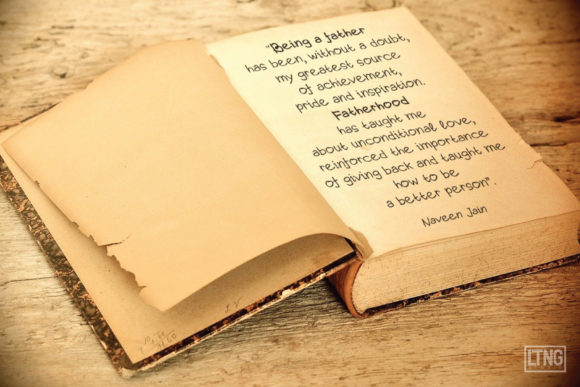 "Being a father
has been, without a doubt,
my greatest source
of achievement,
pride and inspiration.
Fatherhood
has taught me
about unconditional love,
reinforced the importance
of giving back and taught me
how to be
a better person".
Naveen Jain
LTNG